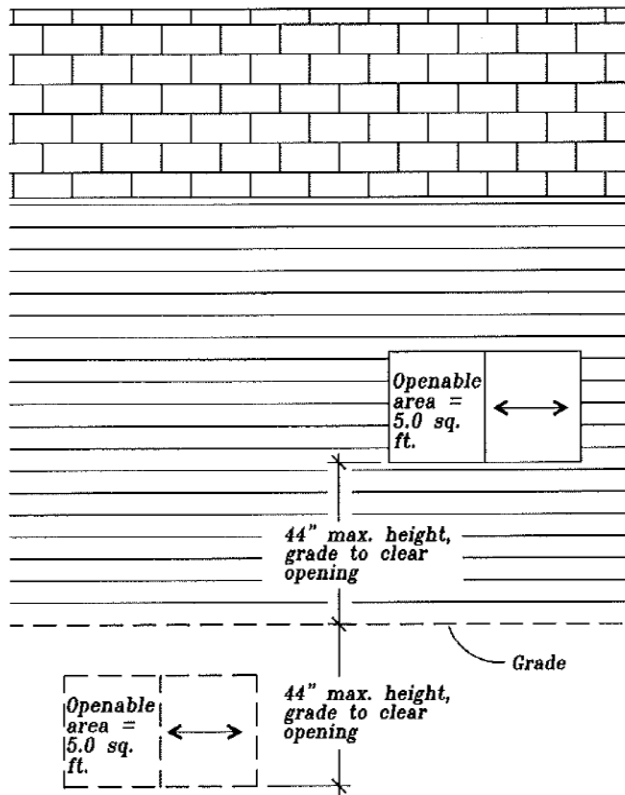 Openable
area =
5.0 sq.
ft.
44" max. height,
grade to clear
opening
Grade
Openable
area =
5.0 sq.
ft.
44" max. height,
grade to clear
opening